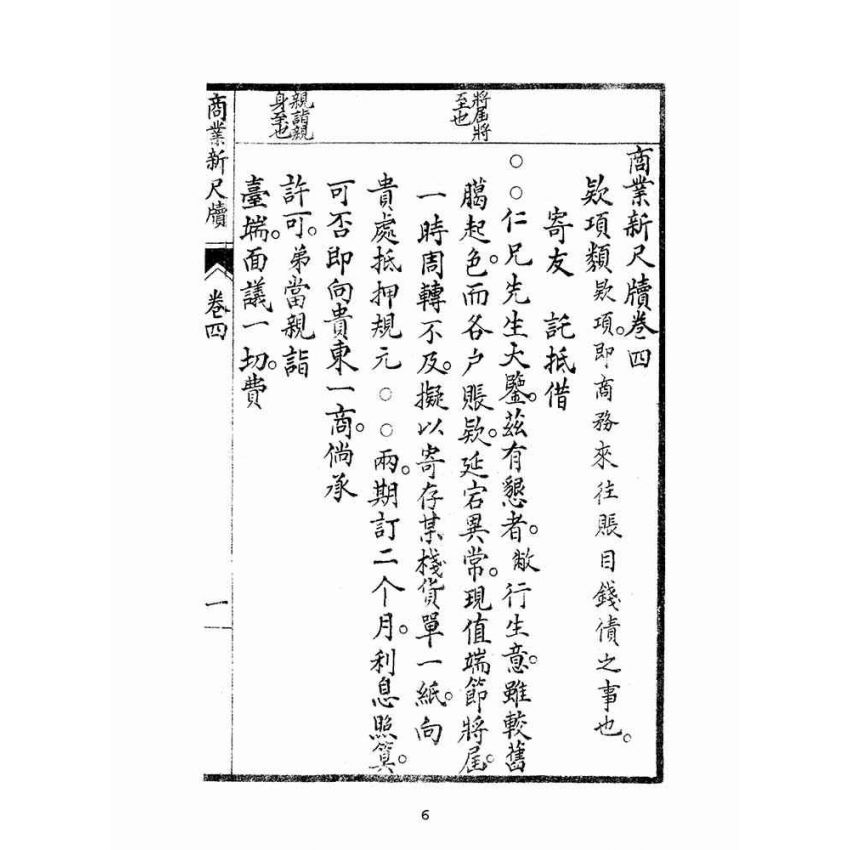 商業新尺牘卷四
欵項類欵項。即商務來往賬目錢債之事也。
寄友 託抵借
○○仁兄先生大鑒。茲有懇者。敝行生意。雖較舊
臈起色。而各户賬欵。延宕異常。現值端節將屆。
一時周轉不及。擬以寄存某棧貨單一紙。向
貴處抵押規元○○兩。期訂二个月。利息照算。
可否即向貴東一商。倘承
許可。弟當親詣
臺端。面議一切。費
將屆將
至也
親詣親
身至也
商業新尺牘
卷四
一
6